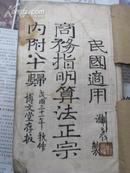 民國適用
商務指明算法正宗
內附十一歸
民國二十一年秋鐫
博文堂存板